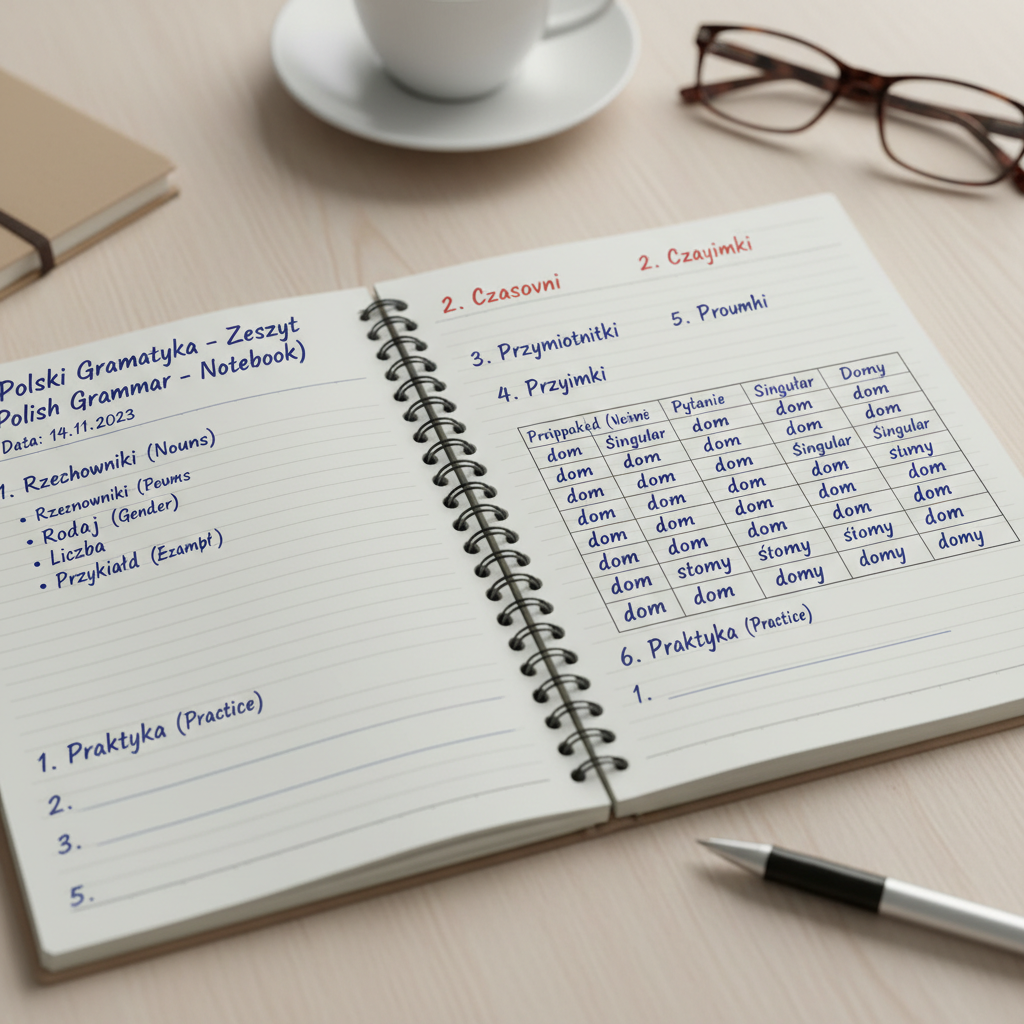 Polski Gramatyka – Zeszyt
Polish Grammar – Notebook)
Data: 14.11.2023
1. Rzechowniki (Nouns)
• Rzeznowniki (Peums
• Rodaj (Gender)
• Liczba
• Przykiałd (Ezampt)
1. Praktyka (Practice)
2.
3.
5.
2. Czasovni
2. Czayimki
3. Przymiotnitki
5. Proumhi
4. Przyimki
Pytanie Singułar Domy
dom Śingular dom dom dom
dom dom dom dom dom
dom dom dom Śingular Śingular
dom dom dom dom stımy
dom dom dom dom dom
dom dom dom dom dom
dom stomy śtomy śtomy dom
dom dom domy domy domy
6. Praktyka (Practice)
1.